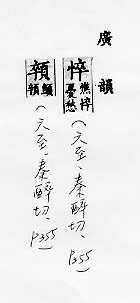 廣韻
悴憔悴憂愁(去至、秦醉切、P355)
顇顦顇(去至、秦醉切、P355)